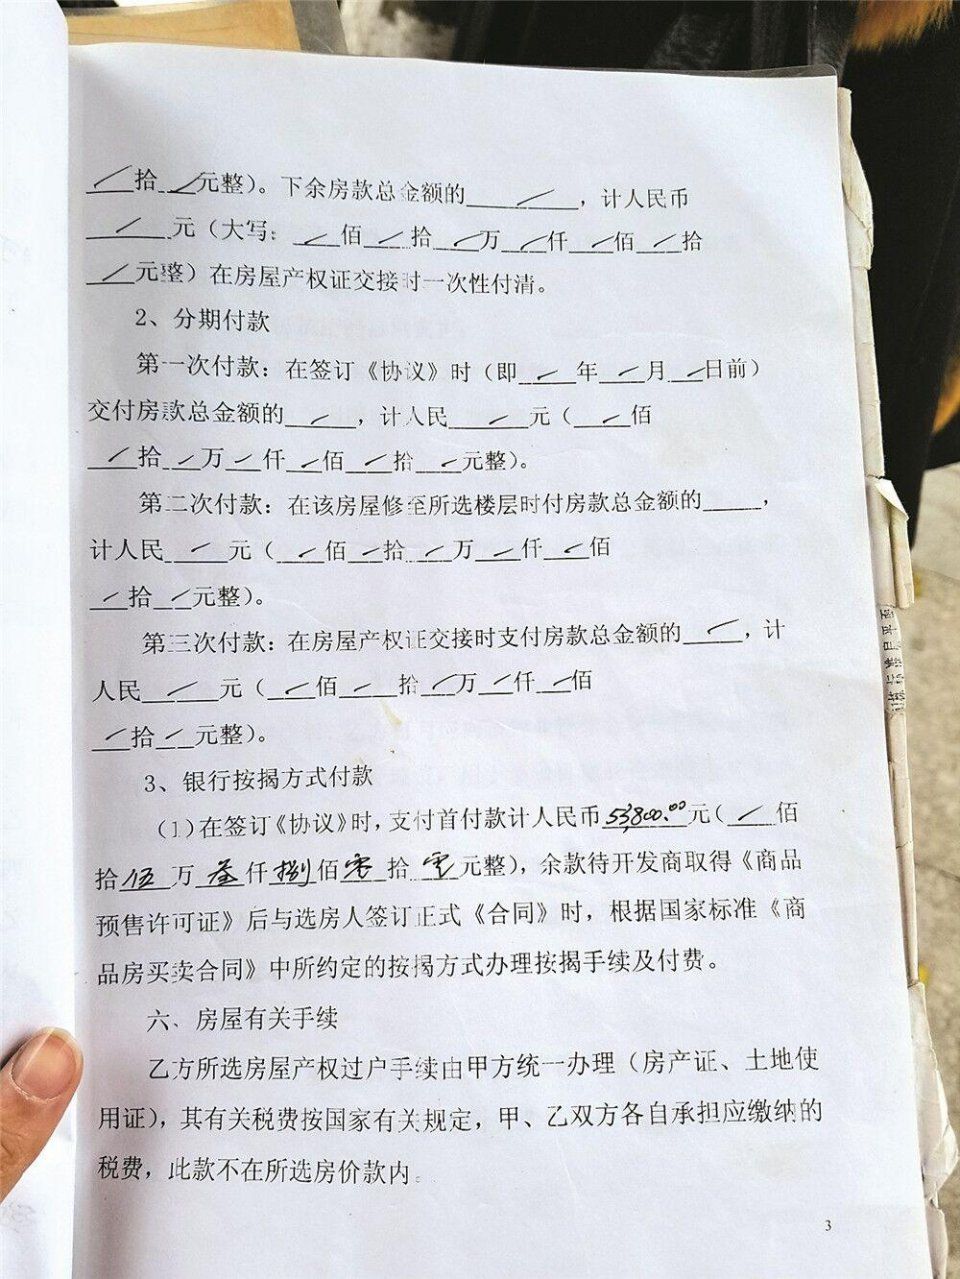 ／拾／元整）。下余房款总金额的／，计人民币
／元（大写：／佰／拾／万／仟／佰／拾
／元整）在房屋产权证交接时一次性付清。
2、分期付款
第一次付款：在签订《协议》时（即／年／月／日前）
交付房款总金额的／，计人民／元（／佰
／拾／万／仟／佰／拾／元整）。
第二次付款：在该房屋修至所选楼层时付房款总金额的____，
计人民／元（／佰／拾／万／仟／佰
／拾／元整）。
第三次付款：在房屋产权证交接时支付房款总金额的／，计
人民／元（／佰／拾／万／仟／佰
／拾／元整）。
3、银行按揭方式付款
（1）在签订《协议》时，支付首付款计人民币53,800.00元（／佰
拾伍万叁仟捌佰零拾零元整），余款待开发商取得《商品
预售许可证》后与选房人签订正式《合同》时，根据国家标准《商
品房买卖合同》中所约定的按揭方式办理按揭手续及付费。
六、房屋有关手续
乙方所选房屋产权过户手续由甲方统一办理（房产证、土地使
用证），其有关税费按国家有关规定，甲、乙双方各自承担应缴纳的
税费，此款不在所选房价款内。
3